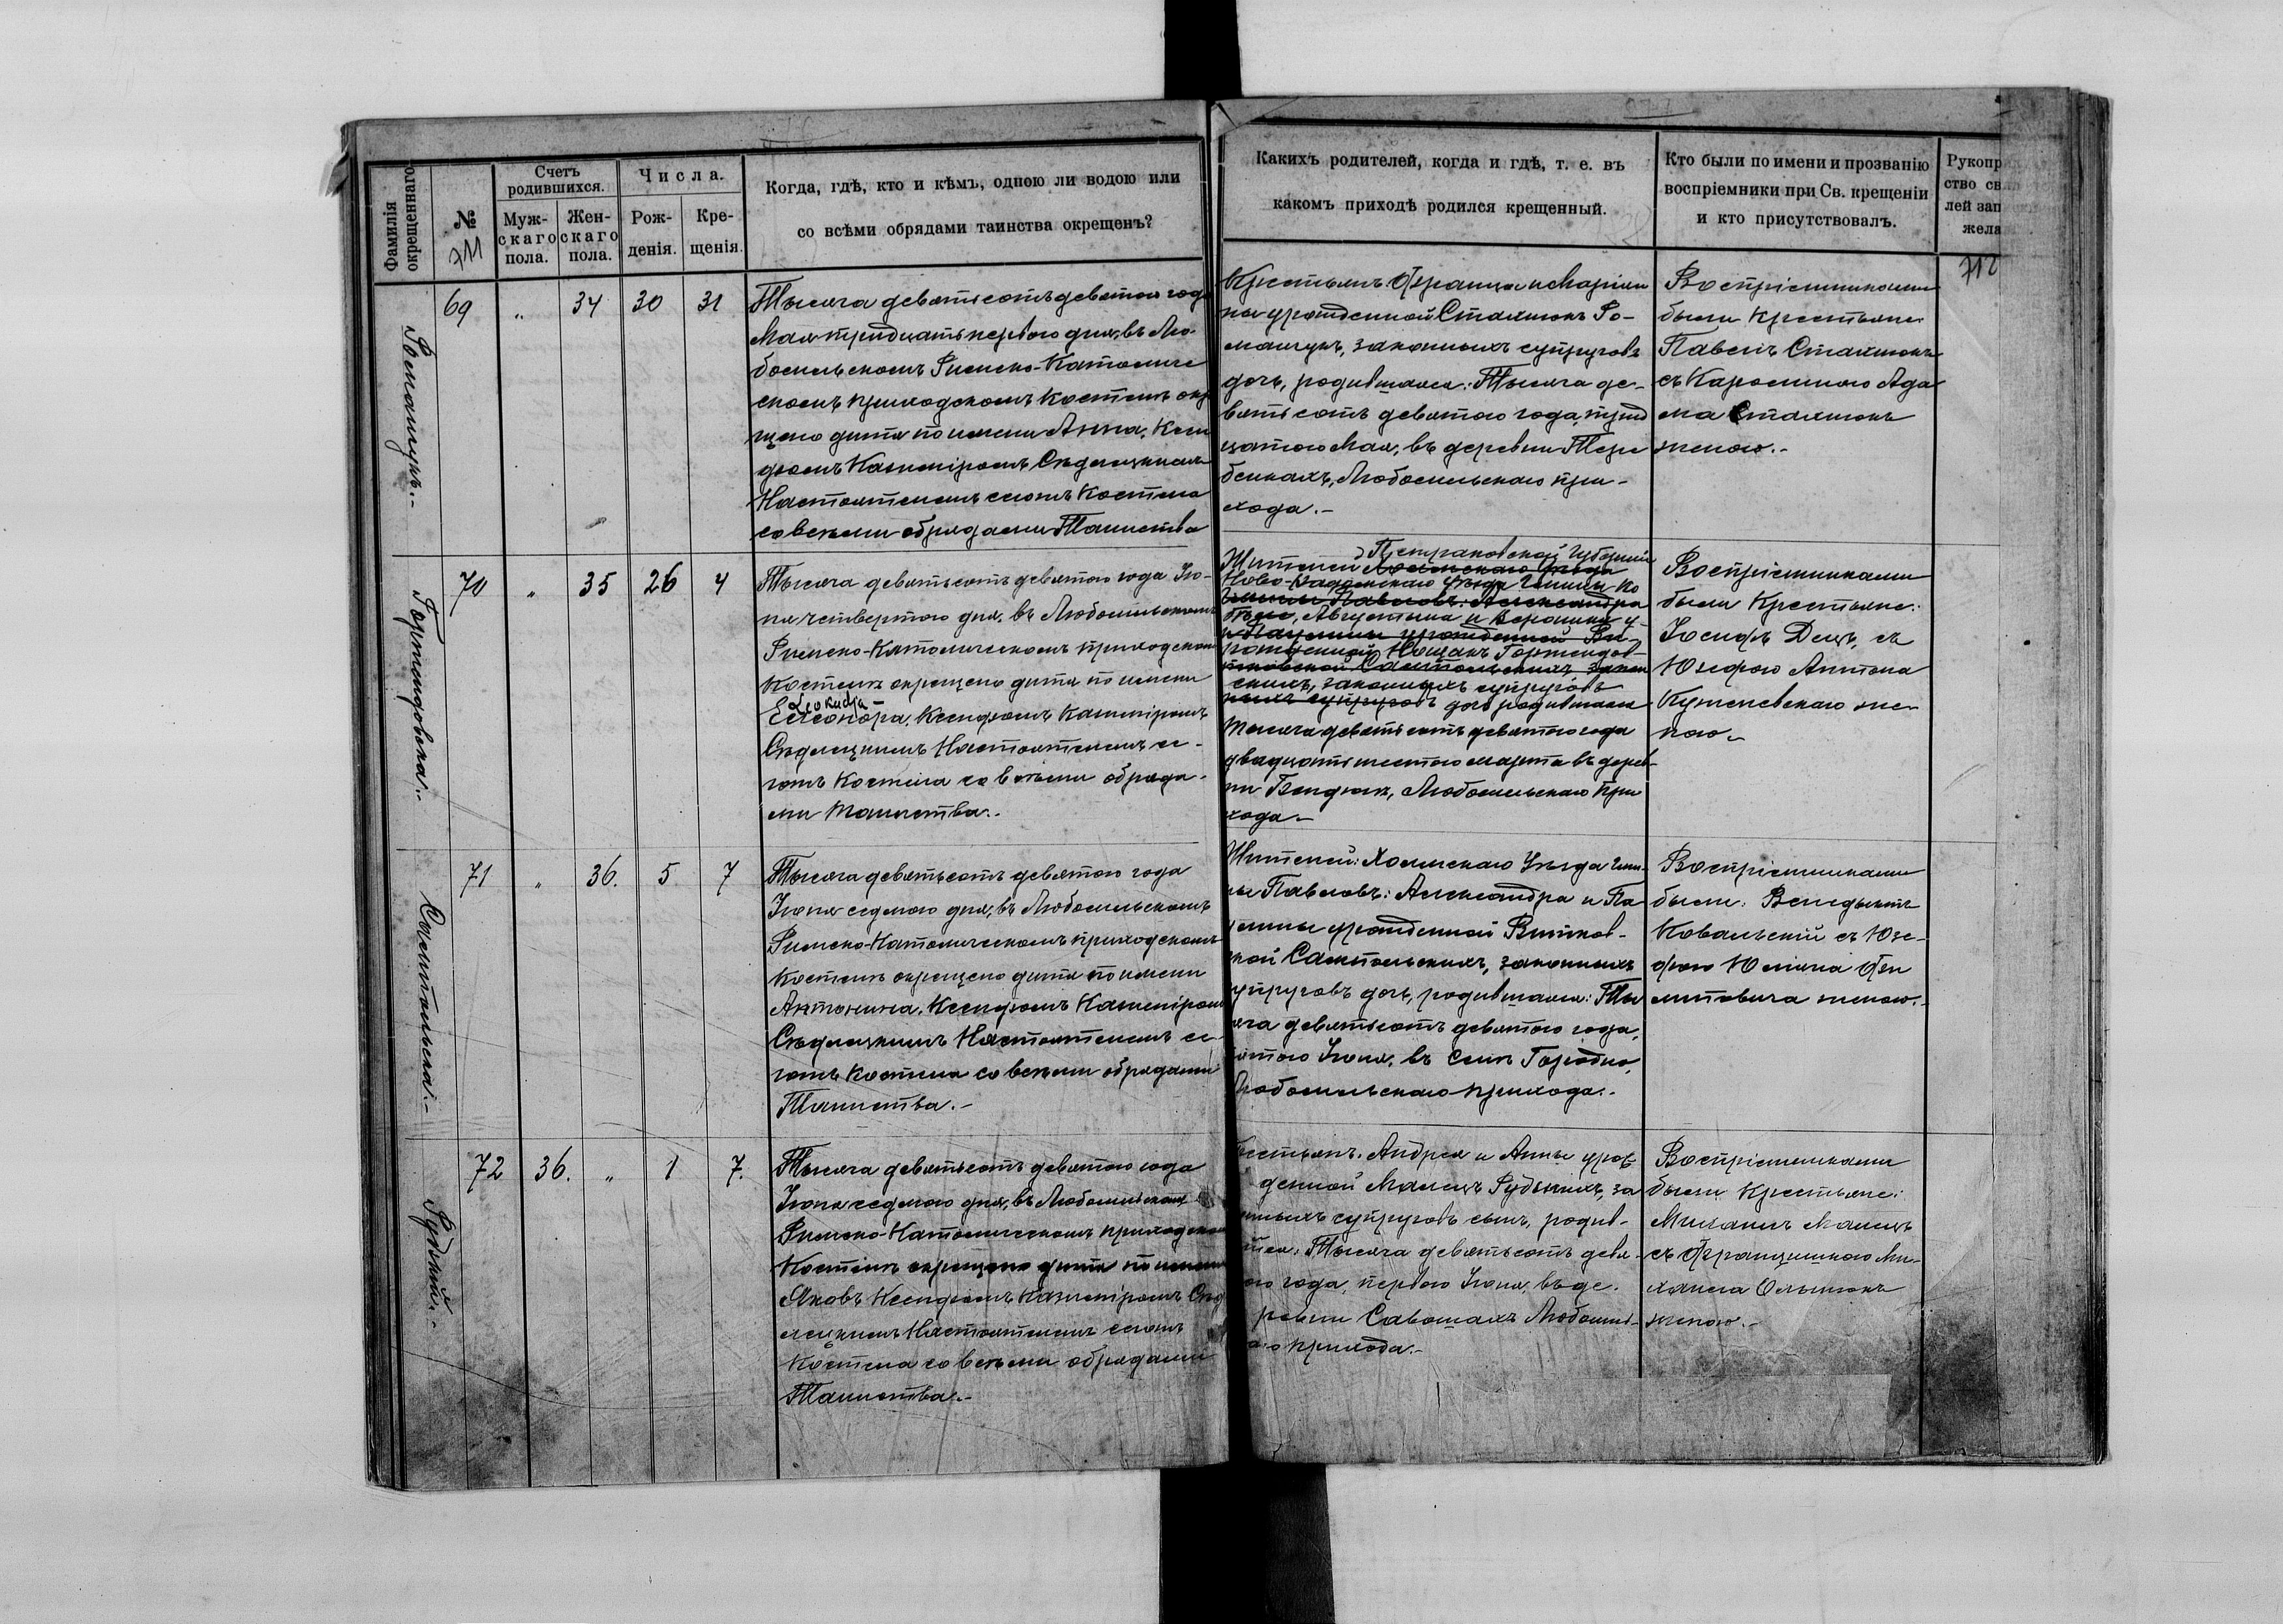 Фамилія
окрещеннаго
№
711
Счетъ
родившихся.
Муж-
скаго
пола.
Жен-
скаго
пола.
Числа.
Рож-
денія.
Кре-
щенія.
Когда, гдѣ, кто и кѣмъ, одною ли водою или
со всѣми обрядами таинства окрещенъ?
Какихъ родителей, когда и гдѣ, т. е. въ
какомъ приходѣ родился крещенный.
Кто были по имени и прозванію
воспріемники при Св. крещеніи
и кто присутствовалъ.
Рукопр
ство св
лей зап
жела
712
Романчукъ.-
69
"
34
30
31
Тысяча девятьсотъ девятого года
Мая тридцать первого дня, въ Лю-
бомльскомъ Римско-Католиче
скомъ приходскомъ Костелѣ окре
щено дитя по имени Анна, Ксен
дзомъ Казиміромъ Сѣдлецкимъ
Настоятелемъ сего Костела
со всѣми обрядами Таинства
Крестьянъ Франца и Маріан
ны урожденной Стахнюкъ Ро-
манчукъ, законныхъ супруговъ
дочь, родившаяся: Тысяча де-
вятьсотъ девятого года, трид
цатого Мая, въ деревни Тере
бейкахъ, Любомльскаго при-
хода.-
Воспріемниками
были Крестьяне:
Павелъ Стахнюкъ
съ Каролиною Ада
ма Стахнюкъ
женою.-
Гортендовска.-
70
"
35
26
4
Тысяча девятьсотъ девятого года Ію-
ня четвертого дня, въ Любомльскомъ
Римско-Католическомъ приходскомъ
Костелѣ окрещено дитя по имени
Леокадiя
Елеонора, Ксендзомъ Казиміромъ
Сѣдлецкимъ Настоятелемъ се-
гожъ Костела со всѣми обряда-
ми Таинства.-
Петраковской Губерніи
Жителей Холмскаго Уѣзда
Ново-Радомскаго Уѣзда Гмины Ко
Гмины Павловъ: Александра
бѣле, Августина и Вероники у-
и Паулины урожденной Вит-
рожденной Нощакъ Гортендов-
ковской Сампольскихъ, закон
скихъ, законныхъ супруговъ
ныхъ супруговъ дочь родившаяся
Тысяча девятьсотъ девятого года
двадцать шестого марта въ дерев-
ни Бендюга, Любомльскаго при
хода.-
Воспріемниками
были Крестьяне:
Іосифъ Децъ, съ
Юзефою Антона
Кужневскаго же-
ною.-
Сампольска.-
71
"
36.
5
7
Тысяча девятьсотъ девятого года
Іюня седмого дня, въ Любомльскомъ
Римско-Католическомъ приходскомъ
Костелѣ окрещено дитя по имени
Антонина, Ксендзомъ Казиміромъ
Сѣдлецкимъ Настоятелемъ се-
гожъ Костела со всѣми обрядами
Таинства.-
Жителей: Холмскаго Уѣзда Гми-
ны Павловъ: Александра и Па
улины урожденной Витков-
ской Сампольскихъ, законныхъ
супруговъ дочь, родившаяся: Ты
сяча девятьсотъ девятого года,
пятого Іюня, въ селѣ Городно,
Любомльскаго прихода.-
Воспріемниками
были: Венедыктъ
Ковальскій съ Юзе-
фою Юліяна Фи
липовича женою.-
Рудькій.-
72
36.
"
1
7.
Тысяча девятьсотъ девятого года
Іюня седмого дня, въ Любомльскомъ
Римско-Католическомъ приходскомъ
Костелѣ окрещено дитя по имени
Яковъ Ксендзомъ Казиміромъ Сѣд
лецкимъ Настоятелемъ сегожъ
Костела со всѣми обрядами
Таинства.-
Крестьянъ: Андрея и Анны урож
денной Малецъ Рудькихъ, за
конныхъ супруговъ сынъ, родив-
шійся: Тысяча девятьсотъ девя-
того года, первого Іюня, въ де-
ревни Савошахъ Любомль-
скаго прихода.-
Воспріемниками
были Крестьяне:
Михаилъ Малецъ
съ Францишкою Ми-
хаила Ольшюкъ
женою.-